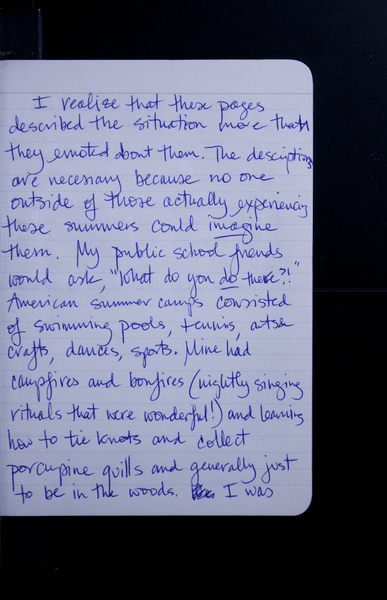 I realize that these pages
described the situation more than
they emoted about them. The descriptions
are necessary because no one
outside of those actually experiencing
these summers could imagine
them. My public school friends
would ask, "What do you do there?!"
American summer camps consisted
of swimming pools, tennis, arts &
crafts, dances, sports. Mine had
campfires and bonfires (nightly singing
rituals that were wonderful!) and learning
how to tie knots and collect
porcupine quills and generally just
to be in the woods. I was